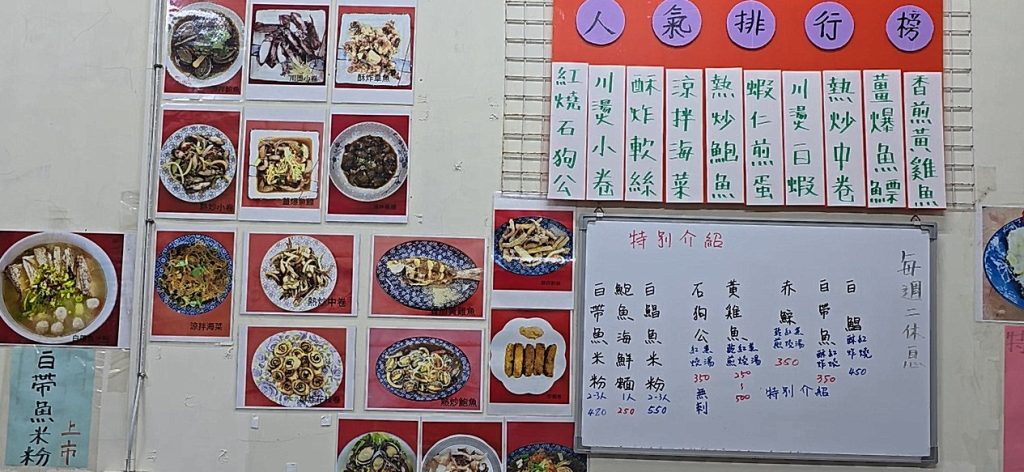 人氣排行榜
香煎黃雞魚
薑爆魚鰾
熱炒中卷
川燙白蝦
蝦仁煎蛋
熱炒鮑魚
涼拌海菜
酥炸軟絲
川燙小卷
紅燒石狗公
特別介紹
每週二休息
白鯧
酥紅
炸燒
450
白帶魚
酥紅
炸燒
350
赤鯮
乾紅蒸
煎燒湯
350
特別介紹
黃雞魚
乾紅蒸
煎燒湯
250
~
500
石狗公
紅蒸
燒湯
350
無刺
白鯧魚米粉
2-3人
550
鮑魚海鮮麵
1人
250
白帶魚米粉
2-3人
480
酥炸章魚
熱炒小卷
薑爆魚鰾
涼拌海菜
熱炒中卷
熱炒鮑魚
白帶魚米粉
上市